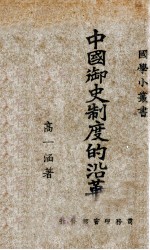 國學小叢書
中國御史制度的沿革
高一涵著
商務印書館發行